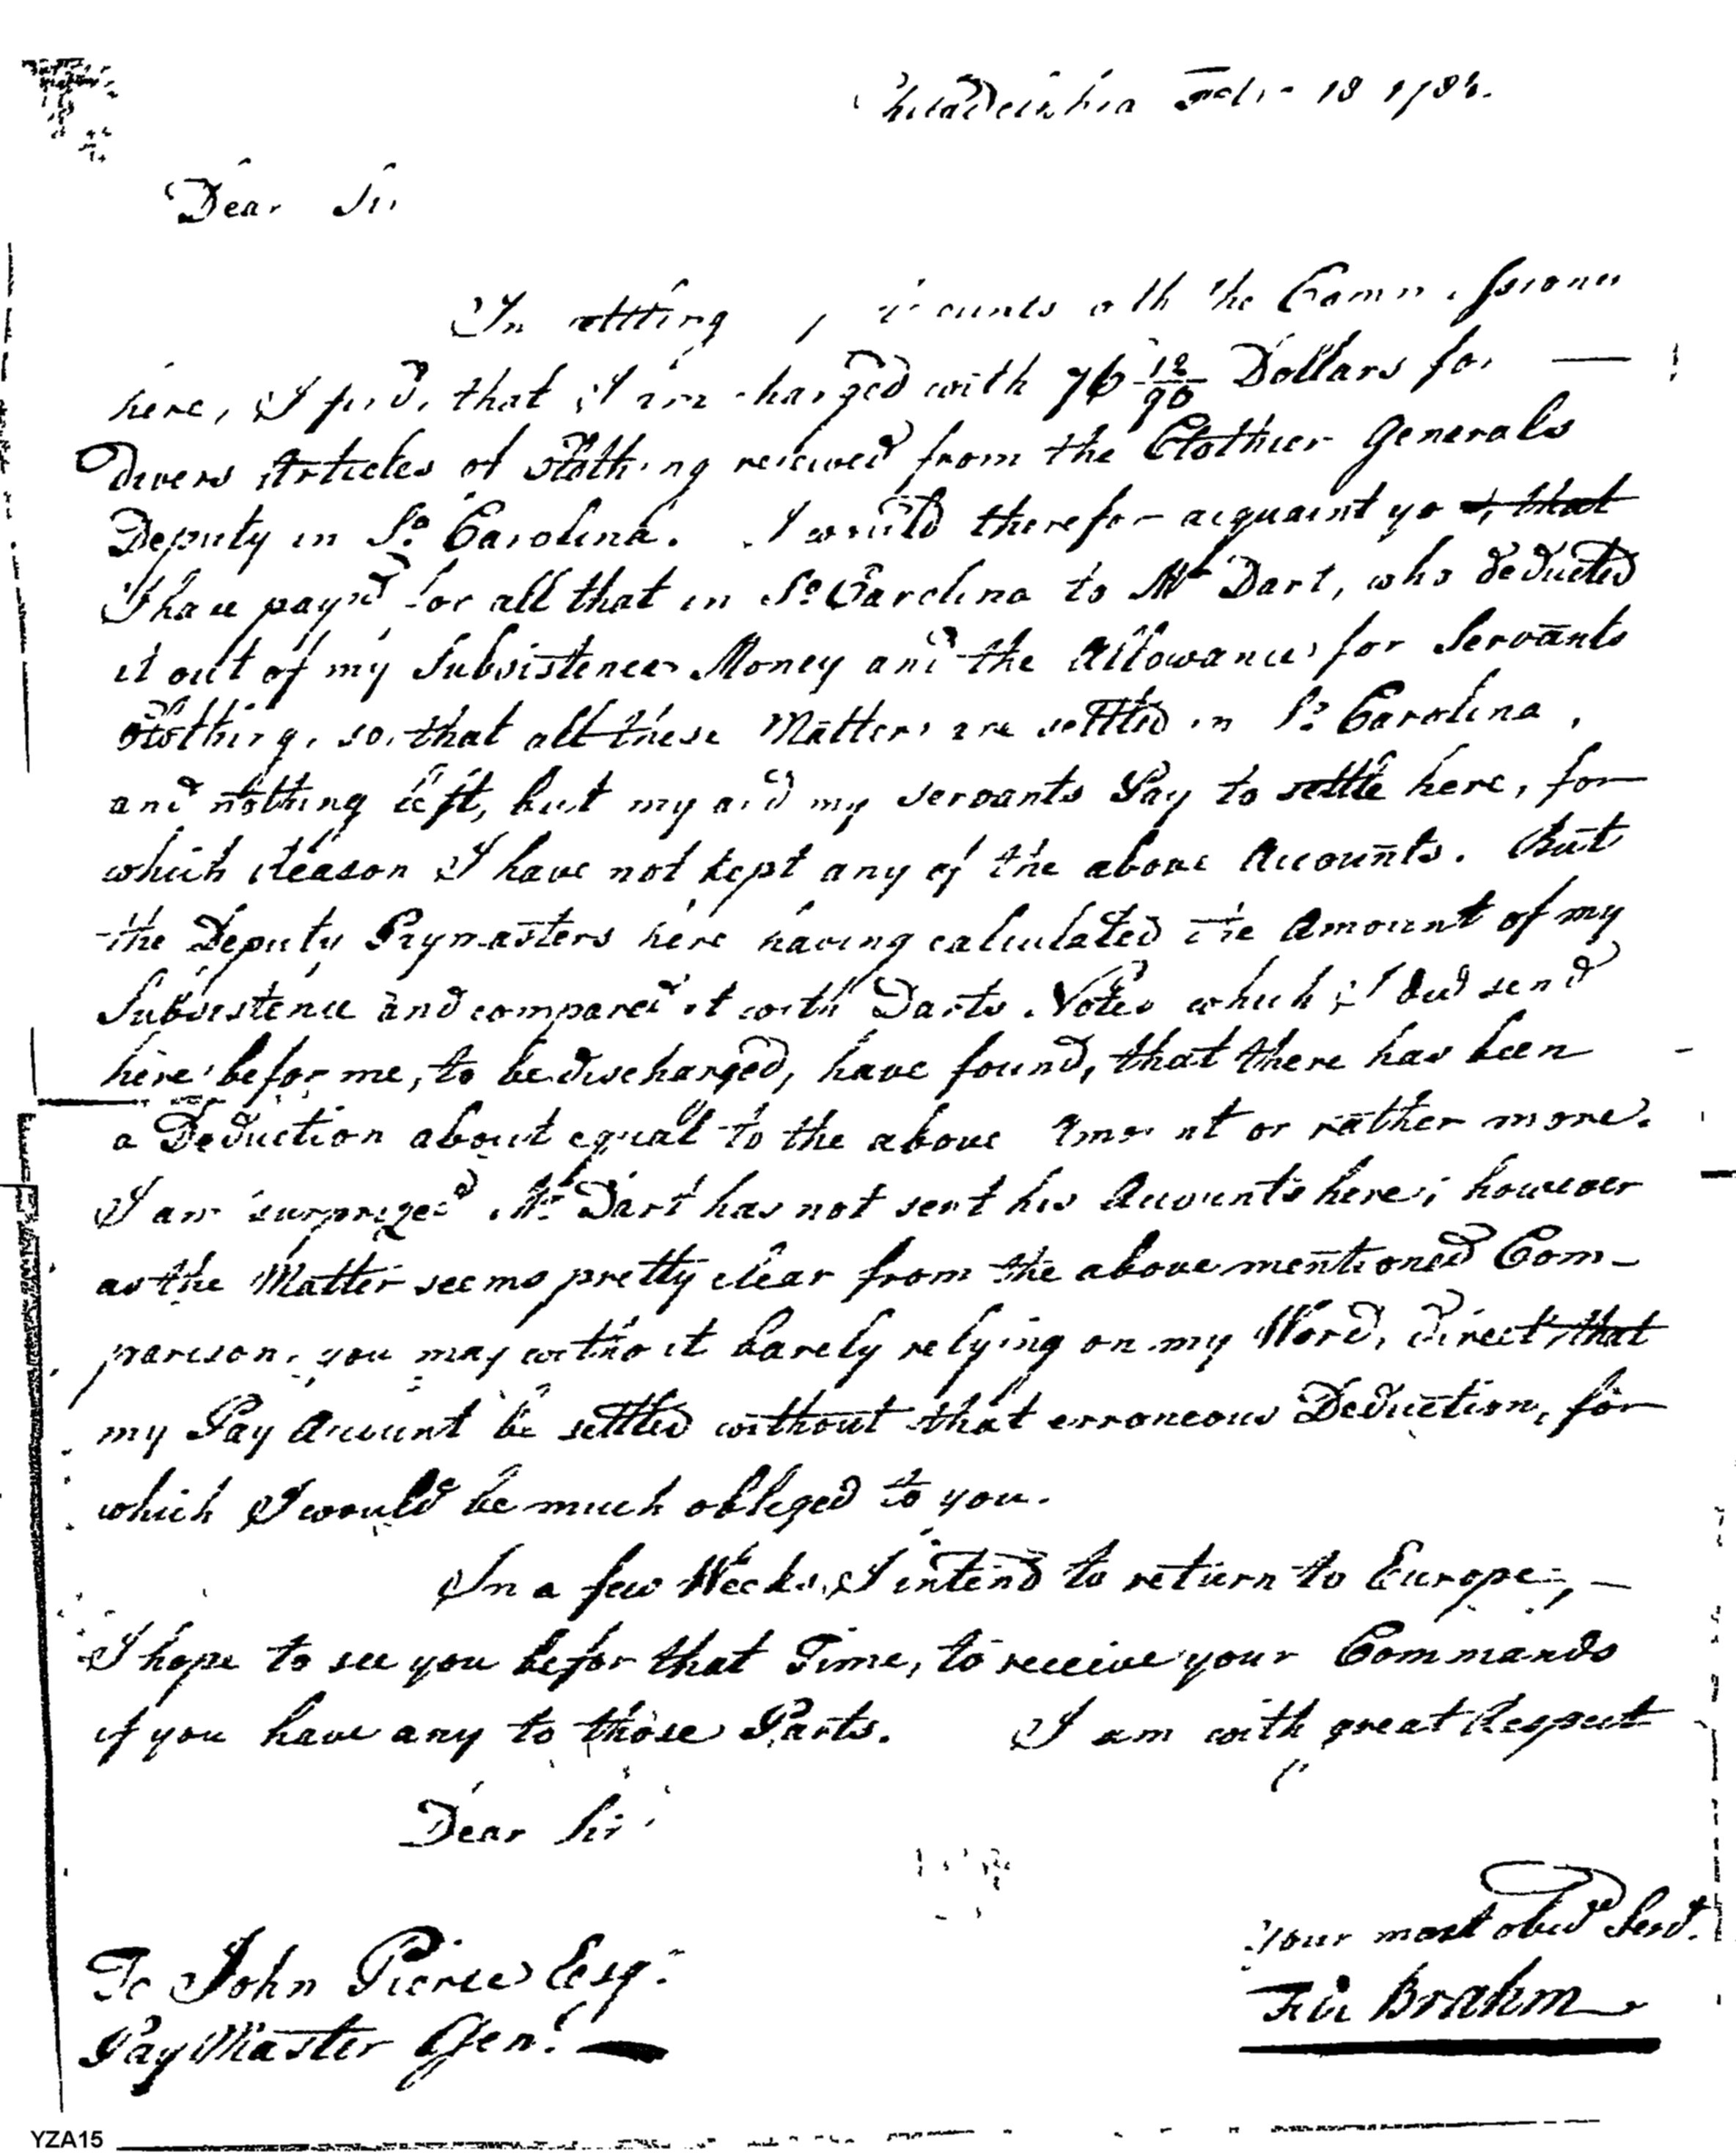 Philadelphia Feb. 18 1784.
Dear Sir
In settling my accounts with the Commissioner
here, I find, that I am charged with 76 12/90 Dollars for —
Divers Articles of Clothing received from the Clothier Generals
Deputy in So. Carolina. I would therefor acquaint you, that
I have payed for all that in So. Carolina to Mr Dart, who deducted
it out of my Subsistence Money and the Allowance for Servants
Clothing, so, that all these Matters are settled in So. Carolina,
and nothing left, but my and my servants Pay to settle here, for
which Reason I have not kept any of the above Accounts. But
the Deputy Paymasters here having calculated the Amount of my
Subsistence and compared it with Darts Notes which I did send
here befor me, to be discharged, have found, that there has been
a Deduction about equal to the above Amount or rather more.
I am surprized Mr. Dart has not sent his Accounts here; however
as the Matter seems pretty clear from the above mentioned Com-
parison, you may without barely relying on my Word, direct, that
my Pay Account be settled without that erroneous Deduction, for
which I would be much obliged to you.
In a few Weeks, I intend to return to Europe, —
I hope to see you befor that Time, to receive your Commands
if you have any to those Parts. I am with great Respect
Dear Sir
your most obed Servt.
To John Pierce Esqr.
Brahm
Pay Master Genl.
YZA15